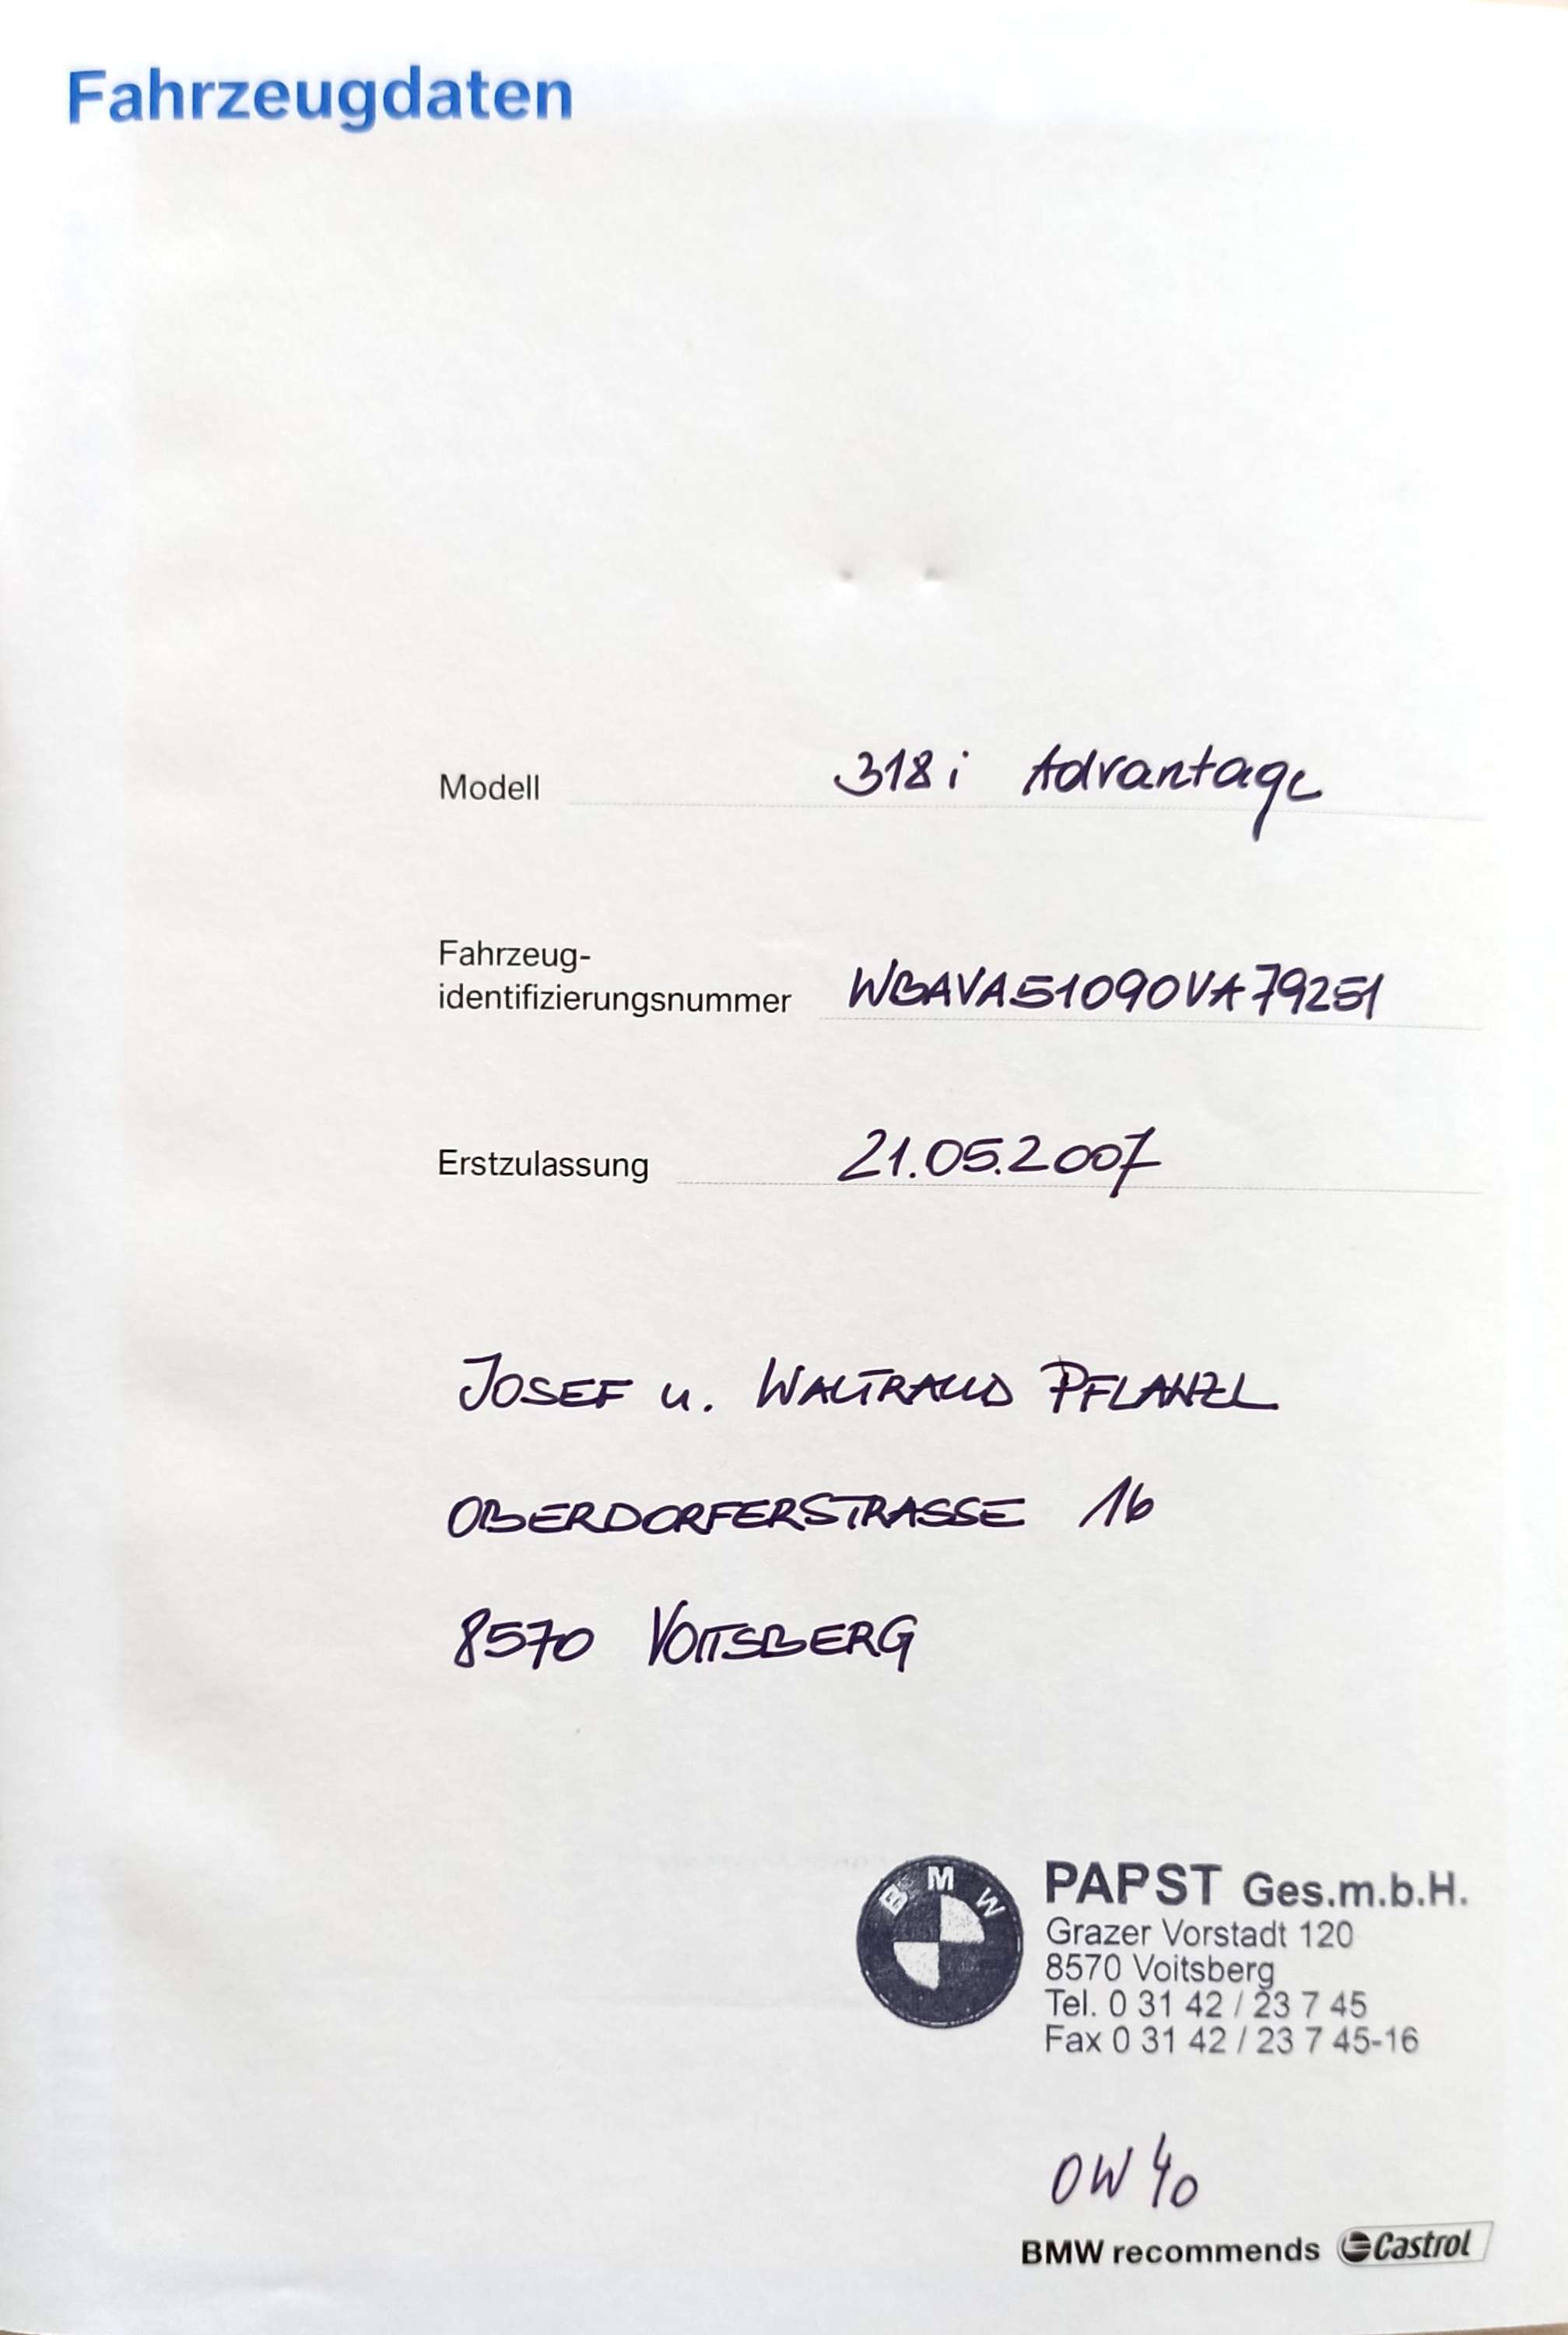 Fahrzeugdaten
Modell 318i Advantage
Fahrzeug-
identifizierungsnummer WBAVA51090VA79251
Erstzulassung 21.05.2007
JOSEF u. WALTRAUD PFLANZL
OBERDORFERSTRASSE 16
8570 VOITSBERG
BMW
PAPST Ges.m.b.H.
Grazer Vorstadt 120
8570 Voitsberg
Tel. 0 31 42 / 23 7 45
Fax 0 31 42 / 23 7 45-16
0W40
BMW recommends Castrol